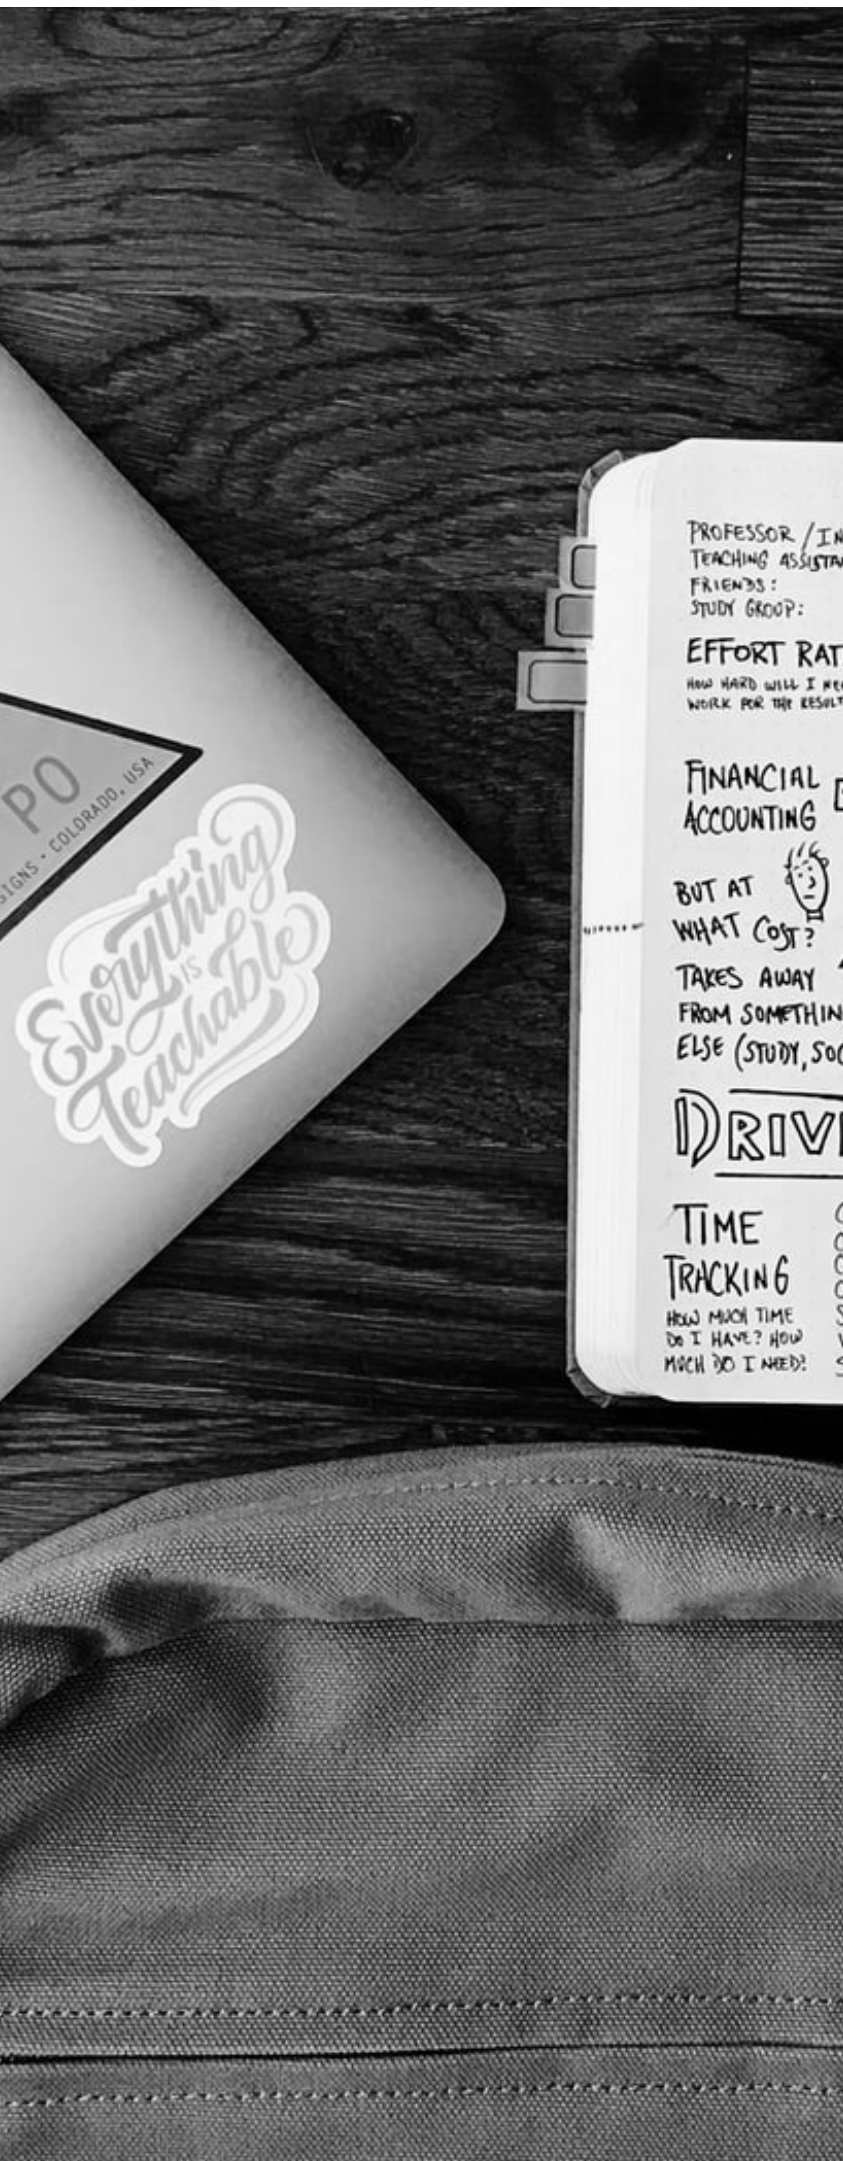 PO
SIGNS • COLORADO, USA
Everything
IS
Teachable
PROFESSOR / IN
TEACHING ASSISTA
FRIENDS:
STUDY GROUP:
EFFORT RAT
HOW HARD WILL I NEE
WORK FOR THE RESULT
FINANCIAL
ACCOUNTING
BUT AT
WHAT COST?
TAKES AWAY
FROM SOMETHIN
ELSE (STUDY, SOC
DRIVE
TIME
TRACKING
HOW MUCH TIME
DO I HAVE? HOW
MUCH DO I NEED?